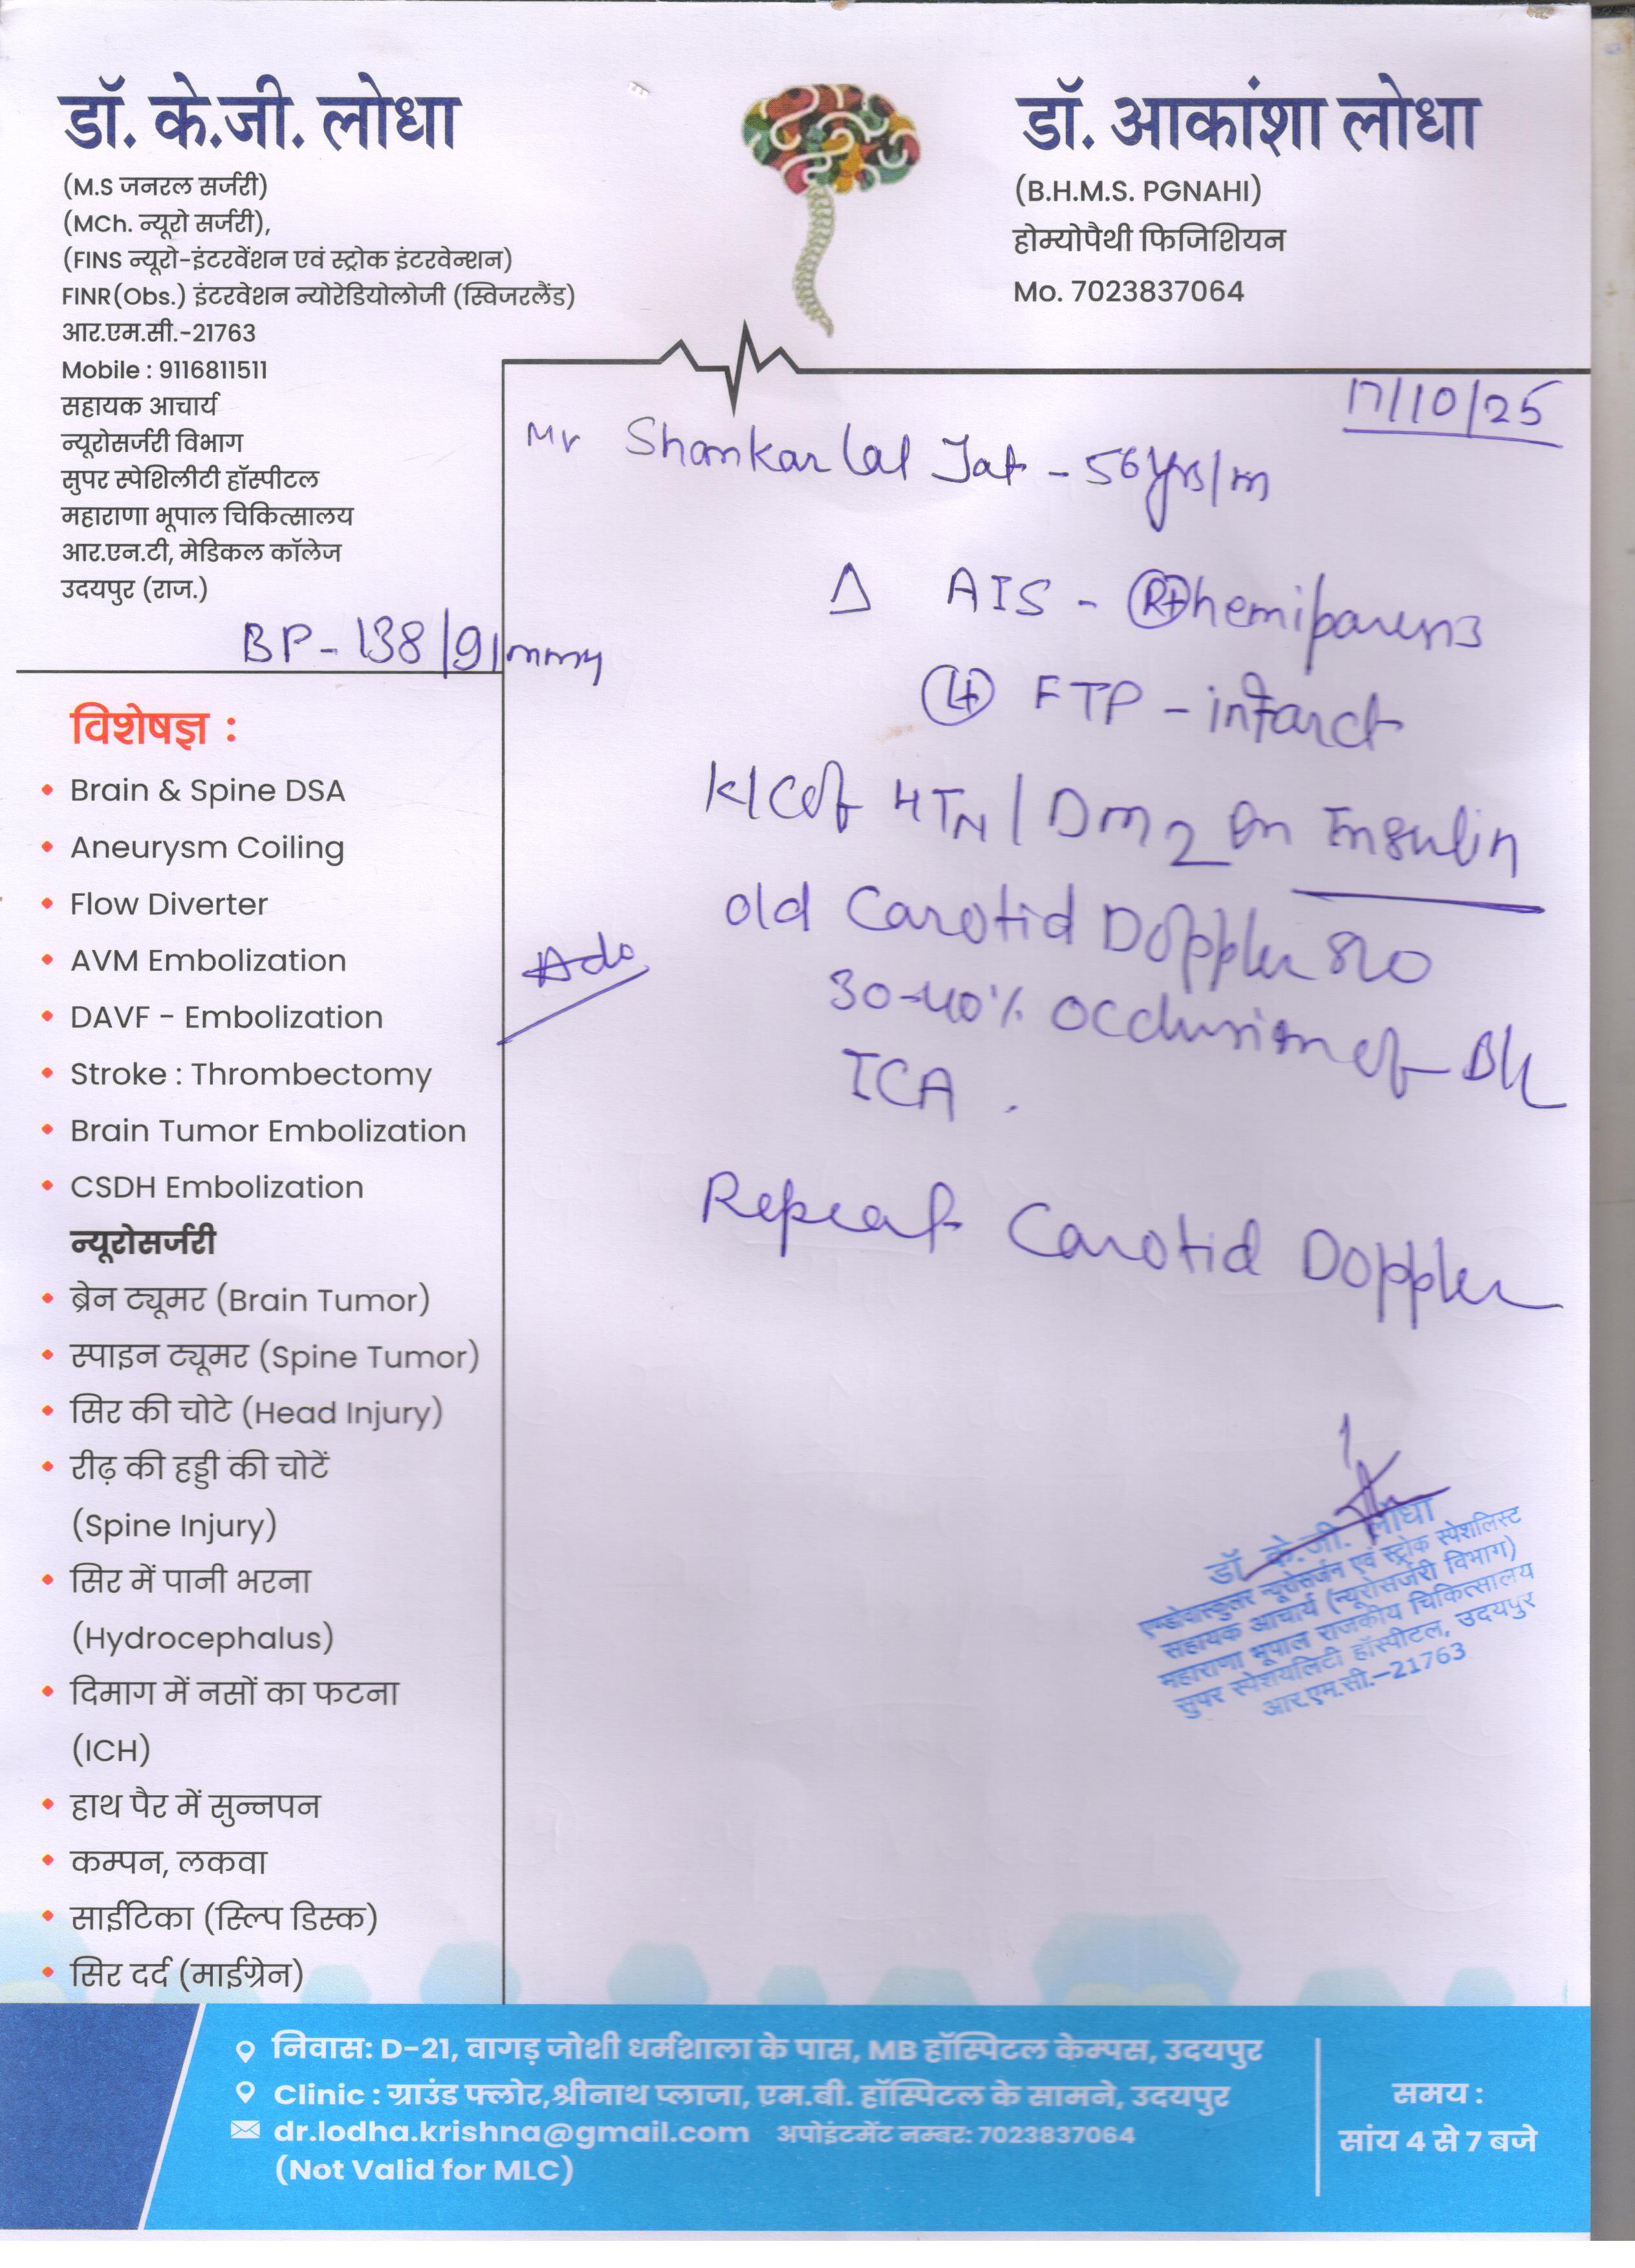 डॉ. के.जी. लोधा
(M.S जनरल सर्जरी)
(MCh. न्यूरो सर्जरी),
(FINS न्यूरो-इंटरवेंशन एवं स्ट्रोक इंटरवेन्शन)
FINR(Obs.) इंटरवेशन न्योरेडियोलोजी (स्विजरलैंड)
आर.एम.सी.-21763
Mobile : 9116811511
सहायक आचार्य
न्यूरोसर्जरी विभाग
सुपर स्पेशिलीटी हॉस्पीटल
महाराणा भूपाल चिकित्सालय
आर.एन.टी, मेडिकल कॉलेज
उदयपुर (राज.)
डॉ. आकांशा लोधा
(B.H.M.S. PGNAHI)
होम्योपैथी फिजिशियन
Mo. 7023837064
17/10/25
Mr Shankar lal Jat - 56yrs/m
BP - 138/91
Δ AIS - Rt hemiparesis
Lt FTP - infarct
K/C of HTN / Dm2 on Insulin
old Carotid Doppler s/o
30-40% occlusion of B/L
ICA .
Adv
Repeat Carotid Doppler
विशेषज्ञ :
• Brain & Spine DSA
• Aneurysm Coiling
• Flow Diverter
• AVM Embolization
• DAVF - Embolization
• Stroke : Thrombectomy
• Brain Tumor Embolization
• CSDH Embolization
न्यूरोसर्जरी
• ब्रेन ट्यूमर (Brain Tumor)
• स्पाइन ट्यूमर (Spine Tumor)
• सिर की चोटे (Head Injury)
• रीढ़ की हड्डी की चोटें
(Spine Injury)
• सिर में पानी भरना
(Hydrocephalus)
• दिमाग में नसों का फटना
(ICH)
• हाथ पैर में सुन्नपन
• कम्पन, लकवा
• साईटिका (स्लिप डिस्क)
• सिर दर्द (माईग्रेन)
डॉ. के.जी. लोधा
एण्डोवास्कुलर न्यूरोसर्जन एवं स्ट्रोक स्पेशलिस्ट
सहायक आचार्य (न्यूरोसर्जरी विभाग)
महाराणा भूपाल राजकीय चिकित्सालय
सुपर स्पेशयलिटी हॉस्पीटल, उदयपुर
आर.एम.सी.-21763
निवास: D-21, वागड़ जोशी धर्मशाला के पास, MB हॉस्पिटल केम्पस, उदयपुर
Clinic : ग्राउंड फ्लोर,श्रीनाथ प्लाजा, एम.बी. हॉस्पिटल के सामने, उदयपुर
dr.lodha.krishna@gmail.com अपोइंटमेंट नम्बर: 7023837064
(Not Valid for MLC)
समय :
सांय 4 से 7 बजे